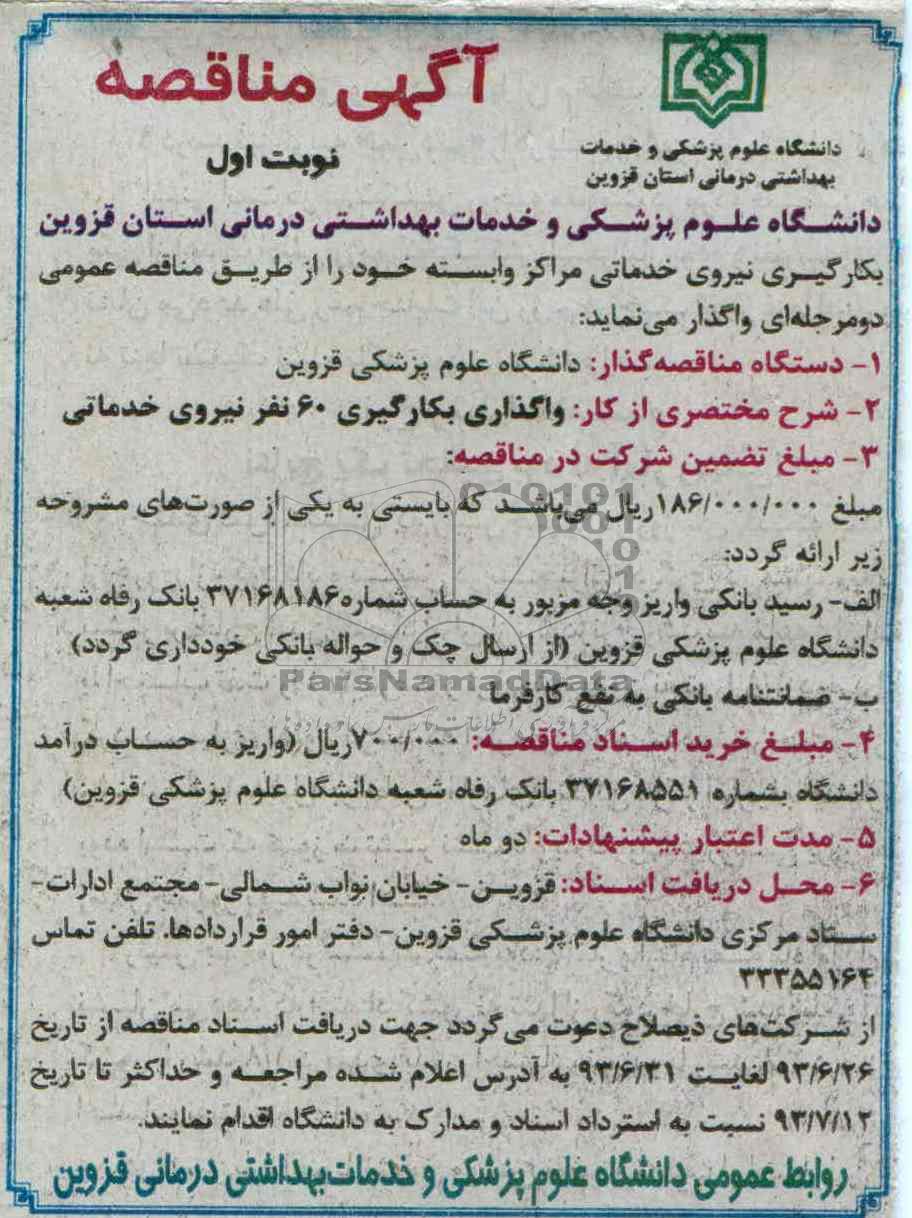 آگهی مناقصه
نوبت اول
دانشگاه علوم پزشکی و خدمات
بهداشتی درمانی استان قزوین
دانشگاه علوم پزشکی و خدمات بهداشتی درمانی استان قزوین
بکارگیری نیروی خدماتی مراکز وابسته خود را از طریق مناقصه عمومی
دومرحله‌ای واگذار می‌نماید:
۱- دستگاه مناقصه‌گذار: دانشگاه علوم پزشکی قزوین
۲- شرح مختصری از کار: واگذاری بکارگیری ۶۰ نفر نیروی خدماتی
۳- مبلغ تضمین شرکت در مناقصه:
مبلغ ۱۸۶/۰۰۰/۰۰۰ریال می‌باشد که بایستی به یکی از صورت‌های مشروحه
زیر ارائه گردد:
الف- رسید بانکی واریز وجه مزبور به حساب شماره۳۷۱۶۸۱۸۶ بانک رفاه شعبه
دانشگاه علوم پزشکی قزوین (از ارسال چک و حواله بانکی خودداری گردد)
ParsNamadData
ب- ضمانتنامه بانکی به نفع کارفرما
۴- مبلغ خرید اسناد مناقصه: ۷۰۰/۰۰۰ریال (واریز به حساب درآمد
دانشگاه بشماره ۳۷۱۶۸۵۵۱ بانک رفاه شعبه دانشگاه علوم پزشکی قزوین)
۵- مدت اعتبار پیشنهادات: دو ماه
۶- محل دریافت اسناد: قزوین- خیابان نواب شمالی- مجتمع ادارات-
ستاد مرکزی دانشگاه علوم پزشکی قزوین- دفتر امور قراردادها. تلفن تماس
۳۳۳۵۵۱۶۴
از شرکت‌های ذیصلاح دعوت می‌گردد جهت دریافت اسناد مناقصه از تاریخ
۹۳/۶/۲۶ لغایت ۹۳/۶/۳۱ به آدرس اعلام شده مراجعه و حداکثر تا تاریخ
۹۳/۷/۱۲ نسبت به استرداد اسناد و مدارک به دانشگاه اقدام نمایند.
روابط عمومی دانشگاه علوم پزشکی و خدمات‌بهداشتی درمانی قزوین